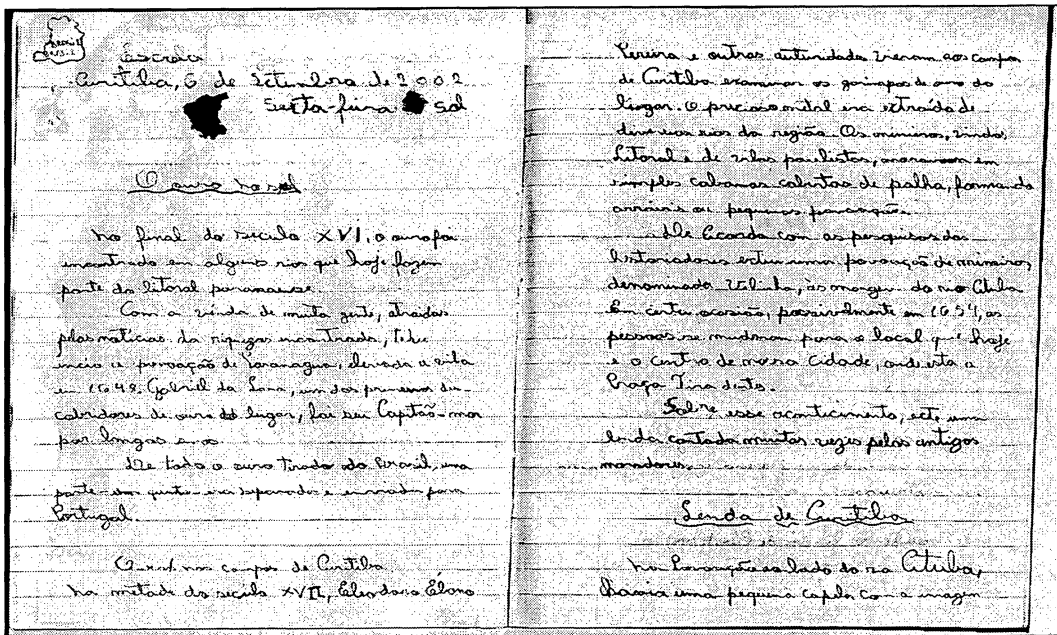 Escola
Curitiba, 6 de Setembro de 2002
Sexta-feira sol
O ouro no sul
No final do seculo XVI, o ouro foi
encontrado em alguns rios que hoje fazem
parte do litoral paranaense.
Com a vinda de muita gente, atraidas
pelas noticias da riqueza encontrada, teve
inicio a povoação de Paranagua, elevada a vila
em 1648. Gabriel de Lara, um dos primeiros des
cobridores de ouro do lugar, foi seu Capitão-mor
por longos anos
De todo o ouro tirado do Brasil, uma
parte era separada e enviada para
Portugal.
nos campos de Curitiba
Na metade do seculo XVII, Eleodoro Ébano
Pereira e outras autoridades vieram aos campos
de Curitiba examinar os garimpos de ouro do
lugar. O precioso metal era extraído de
rios da região. Os mineiros, vindos
Litoral e de vilas paulistas, moravam em
simples cabanas cobertas de palha, formando
arraiais ou pequenas povoações.
De acordo com as pesquisas dos
historiadores uma povoação de mineiros,
denominada Vilinha, as margens do rio Atuba
Em certa ocasião, possivelmente em 1654, as
pessoas se mudaram para o local que hoje
e o centro de nossa Cidade, onde esta a
Praça Tiradentes.
Sobre esse acontecimento, uma
lenda contada muitas vezes pelos antigos
moradores.
Lenda de Curitiba
Na Povoação ao lado do rio Atuba,
havia uma pequena capela com a imagem